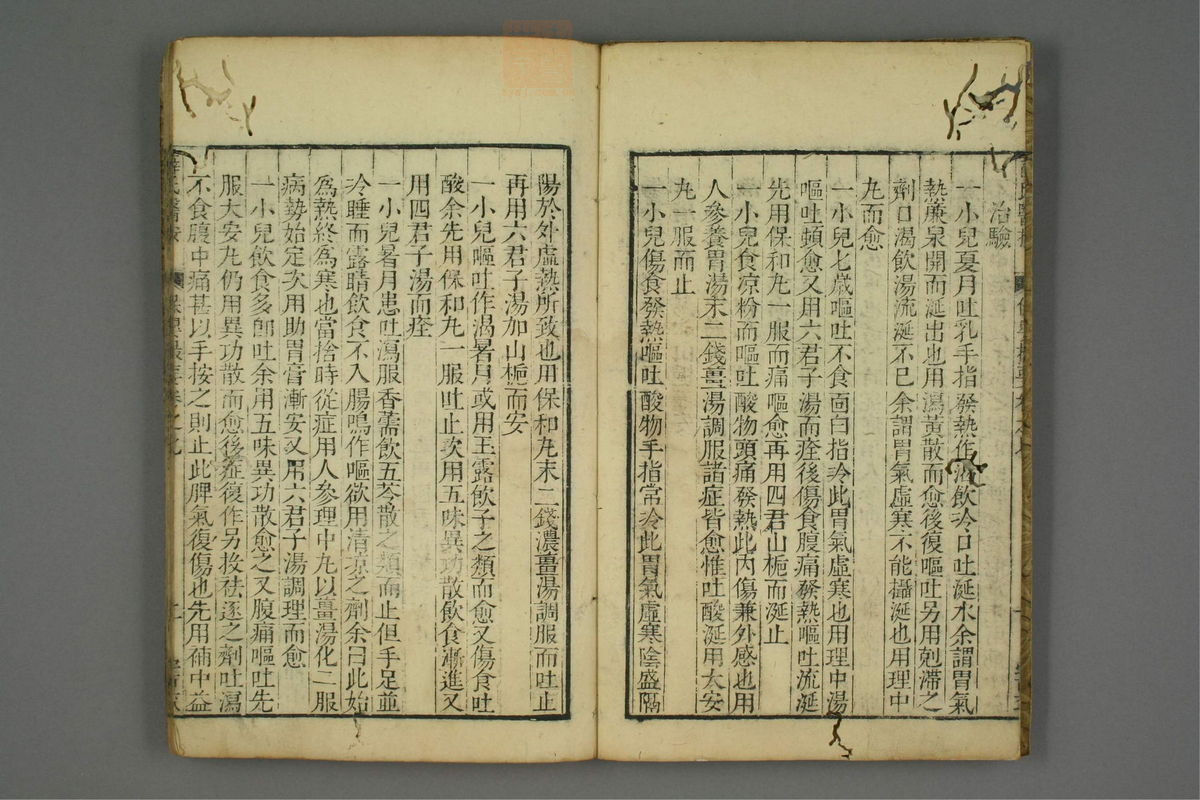 治驗
一小兒夏月吐乳手指發熱作渴飲冷口吐涎水余謂胃氣
熱廉泉開而涎出也用瀉黃散而愈後復嘔吐另用剋滯之
劑口渴飲湯流涎不已余謂胃氣虛寒不能攝涎也用理中
丸而愈
一小兒七歲嘔吐不食面白指冷此胃氣虛寒也用理中湯
嘔吐頓愈又用六君子湯而痊後傷食腹痛發熱嘔吐流涎
先用保和丸一服而痛嘔愈再用四君山梔而涎止
一小兒食凉粉而嘔吐酸物頭痛發熱此內傷兼外感也用
人參養胃湯末二錢薑湯調服諸症皆愈惟吐酸涎用大安
丸一服而止
一小兒傷食發熱嘔吐酸物手指常冷此胃氣虛寒陰盛隔
陽於外虛熱所致也用保和丸末二錢濃薑湯調服而吐止
再用六君子湯加山梔而安
一小兒嘔吐作渴暑月或用玉露飲子之類而愈又傷食吐
酸余先用保和丸一服吐止次用五味異功散飲食漸進又
用四君子湯而痊
一小兒暑月患吐瀉服香薷飲五苓散之類而止但手足並
冷睡而露睛飲食不入腸鳴作嘔欲用清凉之劑余曰此始
爲熱終爲寒也當捨時從症用人參理中丸以薑湯化二服
病勢始定次用助胃膏漸安又用六君子湯調理而愈
一小兒飲食多即吐余用五味異功散愈之又腹痛嘔吐先
服大安丸仍用異功散而愈後症復作另投祛逐之劑吐瀉
不食腹中痛甚以手按之則止此脾氣復傷也先用補中益
薛氏醫按
保嬰撮要卷之七
二